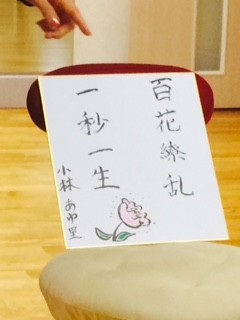 百花繚乱
一秒一生
小林 あゆ里